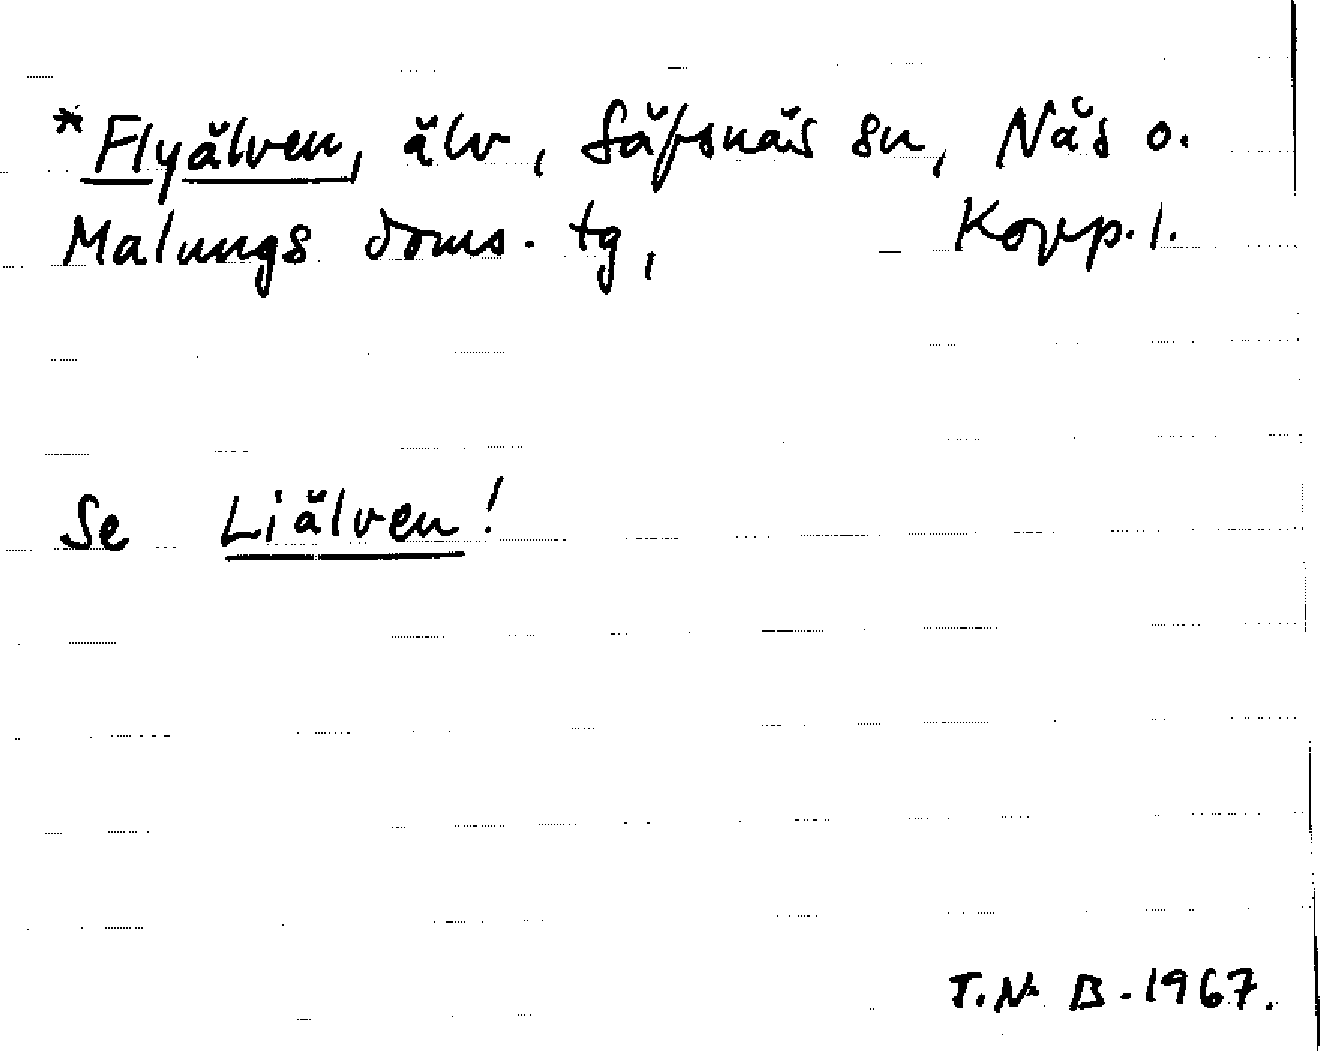 *Flyälven, älv, Säfsnäs sn, Näs o.
Malungs doms. tg, Kopp. l.
Se Liälven!
T.N. B. 1967.